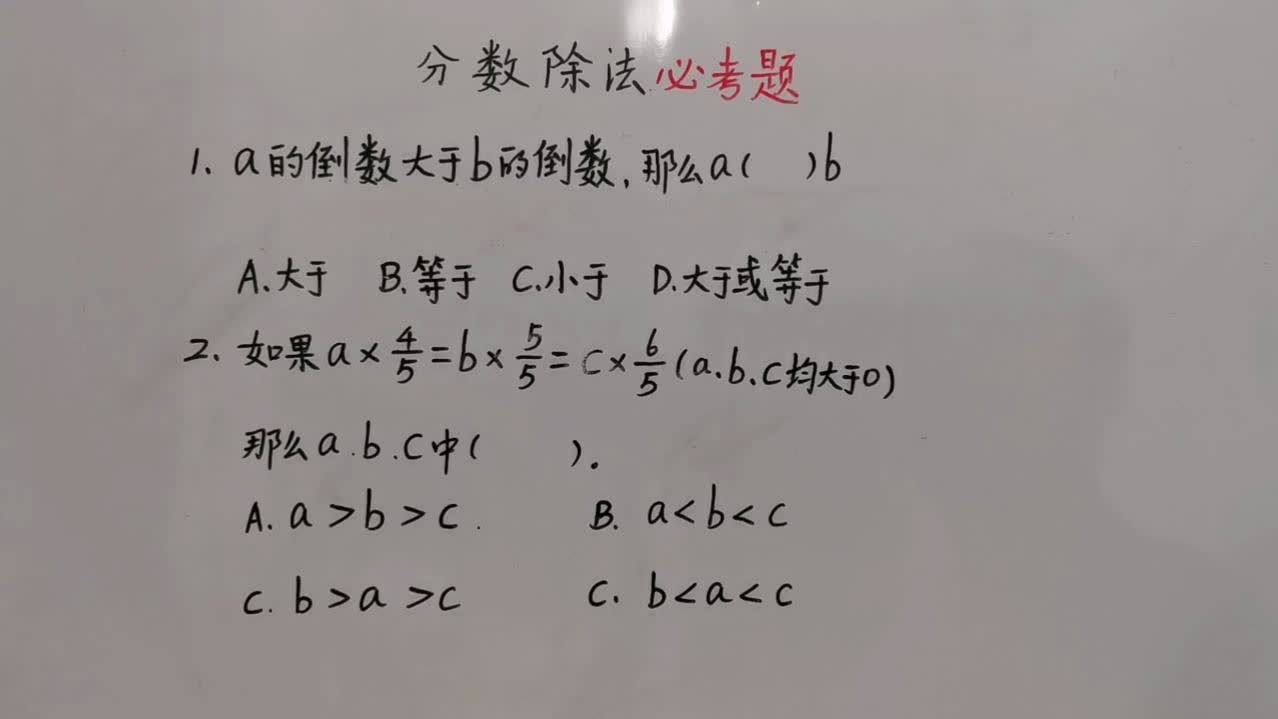 分数除法必考题
1. a的倒数大于b的倒数,那么a( )b
A.大于 B.等于 C.小于 D.大于或等于
2. 如果a×4/5=b×5/5=c×6/5(a.b.c均大于0)
那么a.b.c中( ).
A. a>b>c. B. a<b<c
C. b>a>c C. b<a<c